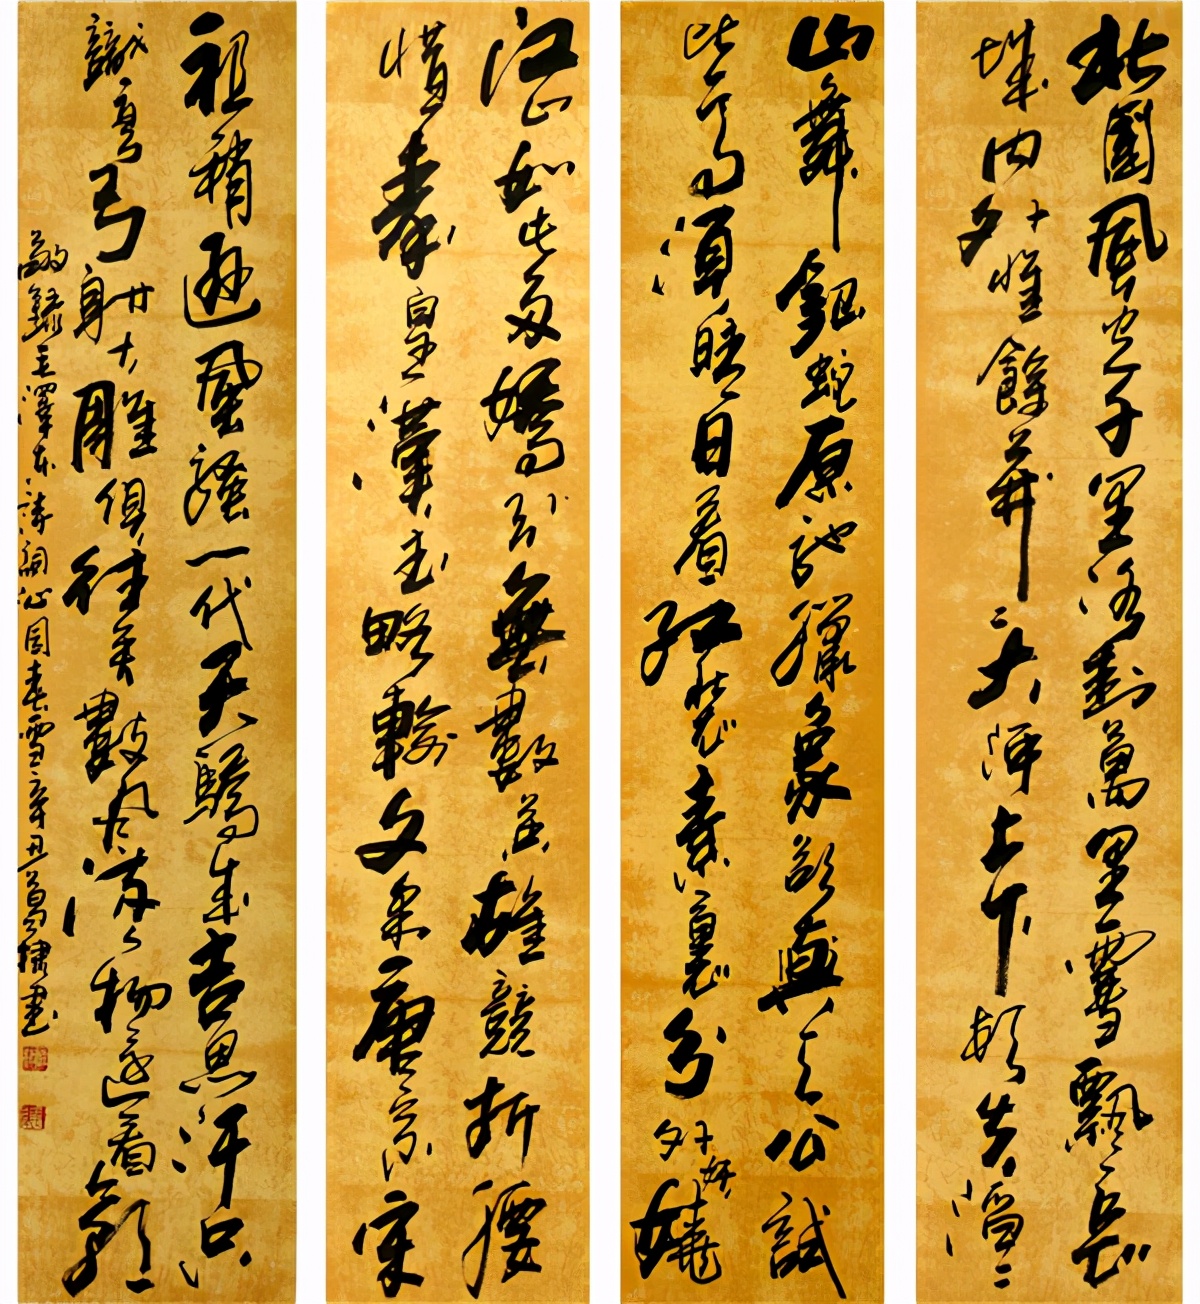 北國風光千里冰封萬里雪飄望長
城内外惟餘莽々大河上下頓失滔々
山舞銀蛇原馳臘象欲與天公試
比高須晴日看紅裝素裹分外妖嬈
江山如此多嬌引無數英雄競折腰
惜秦皇漢武略輸文采唐宗宋
祖稍遜風騷一代天驕成吉思汗只
識彎弓射大雕俱往矣數風流人物還看今朝
敬錄毛澤東詩詞沁園春雪辛丑葛棣書